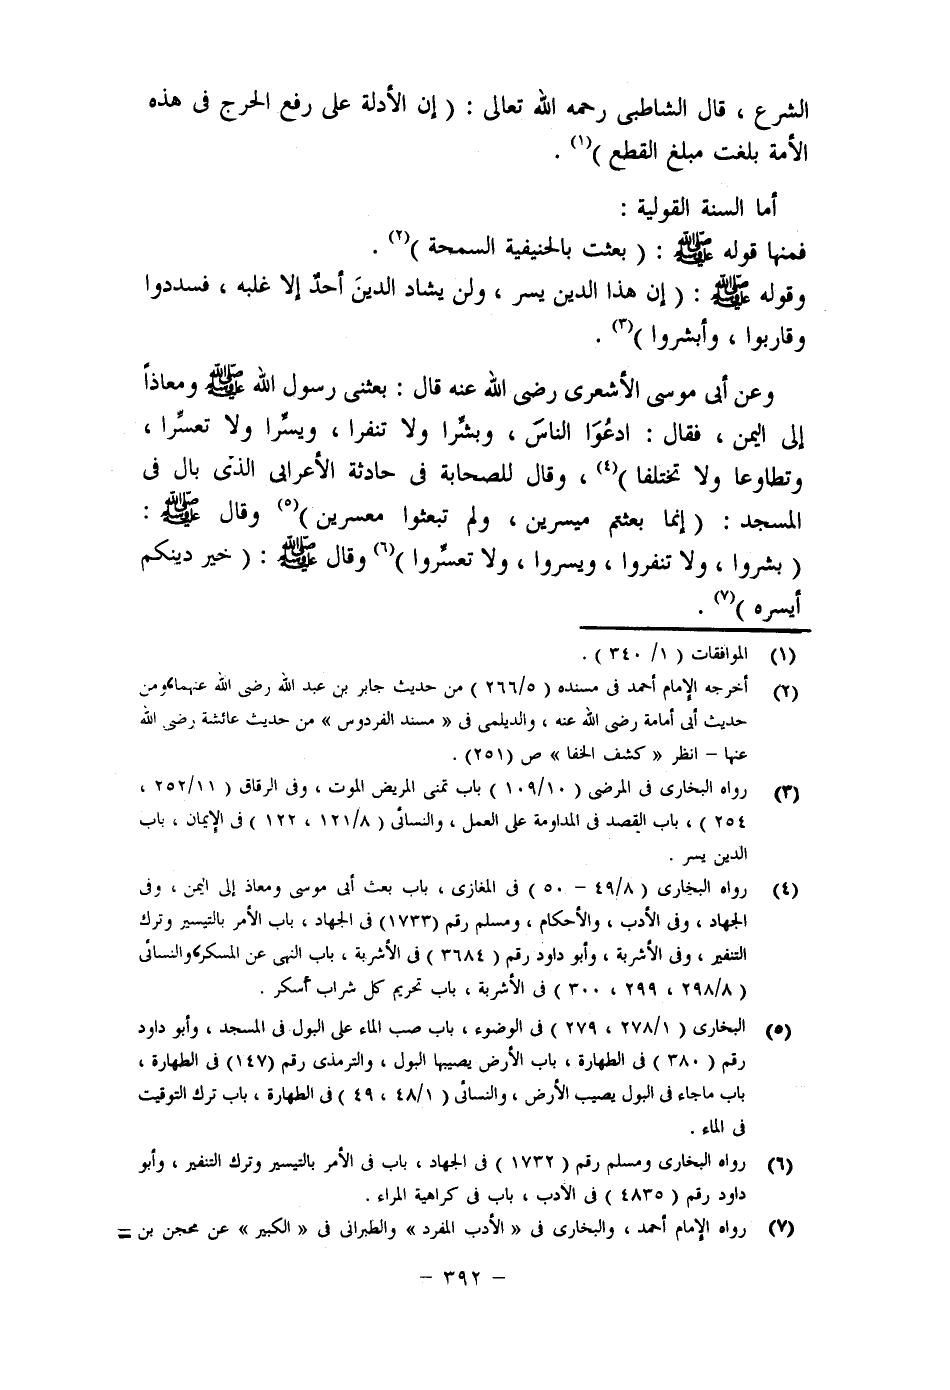 الشرع ، قال الشاطبى رحمه الله تعالى : ( إن الأدلة على رفع الحرج فى هذه
الأمة بلغت مبلغ القطع )(١) .
أما السنة القولية :
فمنها قوله ﷺ : ( بعثت بالحنيفية السمحة )(٢) .
وقوله ﷺ : ( إن هذا الدين يسر ، ولن يشاد الدينَ أحدٌ إلا غلبه ، فسددوا
وقاربوا ، وأبشروا )(٣) .
وعن أبى موسى الأشعرى رضى الله عنه قال : بعثنى رسول الله ﷺ ومعاذاً
إلى اليمن ، فقال : ادعُوَا الناسَ ، وبشِّرا ولا تنفرا ، ويسِّرا ولا تعسِّرا ،
وتطاوعا ولا تختلفا )(٤) ، وقال للصحابة فى حادثة الأعرابى الذى بال فى
المسجد : ( إنما بعثتم ميسرين ، ولم تبعثوا معسرين )(٥) وقال ﷺ :
( بشروا ، ولا تنفروا ، ويسروا ، ولا تعسِّروا )(٦) وقال ﷺ : ( خير دينكم
أيسره )(٧) .
(١) الموافقات ( ١/ ٣٤٠ ) .
(٢) أخرجه الإمام أحمد فى مسنده ( ٢٦٦/٥ ) من حديث جابر بن عبد الله رضى الله عنهما، ومن
حديث أبى أمامة رضى الله عنه ، والديلمى فى « مسند الفردوس » من حديث عائشة رضى الله
عنها – انظر « كشف الخفا » ص (٢٥١) .
(٣) رواه البخارى فى المرضى ( ١٠٩/١٠ ) باب تمنى المريض الموت ، وفى الرقاق ( ٢٥٢/١١ ،
٢٥٤ ) ، باب القصد فى المداومة على العمل ، والنسائى ( ١٢١/٨ ، ١٢٢ ) فى الإيمان ، باب
الدين يسر .
(٤) رواه البخارى ( ٤٩/٨ – ٥٠ ) فى المغازى ، باب بعث أبى موسى ومعاذ إلى اليمن ، وفى
الجهاد ، وفى الأدب ، والأحكام ، ومسلم رقم (١٧٣٣) فى الجهاد ، باب الأمر بالتيسير وترك
التنفير ، وفى الأشربة ، وأبو داود رقم ( ٣٦٨٤ ) فى الأشربة ، باب النهى عن المسكر، والنسائى
( ٢٩٨/٨ ، ٢٩٩ ، ٣٠٠ ) فى الأشربة ، باب تحريم كل شراب أسكر .
(٥) البخارى ( ٢٧٨/١ ، ٢٧٩ ) فى الوضوء ، باب صب الماء على البول فى المسجد ، وأبو داود
رقم ( ٣٨٠ ) فى الطهارة ، باب الأرض يصيبها البول ، والترمذى رقم (١٤٧) فى الطهارة ،
باب ماجاء فى البول يصيب الأرض ، والنسائى ( ٤٨/١ ، ٤٩ ) فى الطهارة ، باب ترك التوقيت
فى الماء .
(٦) رواه البخارى ومسلم رقم ( ١٧٣٢ ) فى الجهاد ، باب فى الأمر بالتيسير وترك التنفير ، وأبو
داود رقم ( ٤٨٣٥ ) فى الأدب ، باب فى كراهية المراء .
(٧) رواه الإمام أحمد ، والبخارى فى « الأدب المفرد » والطبرانى فى « الكبير » عن محجن بن =
– ٣٩٢ –